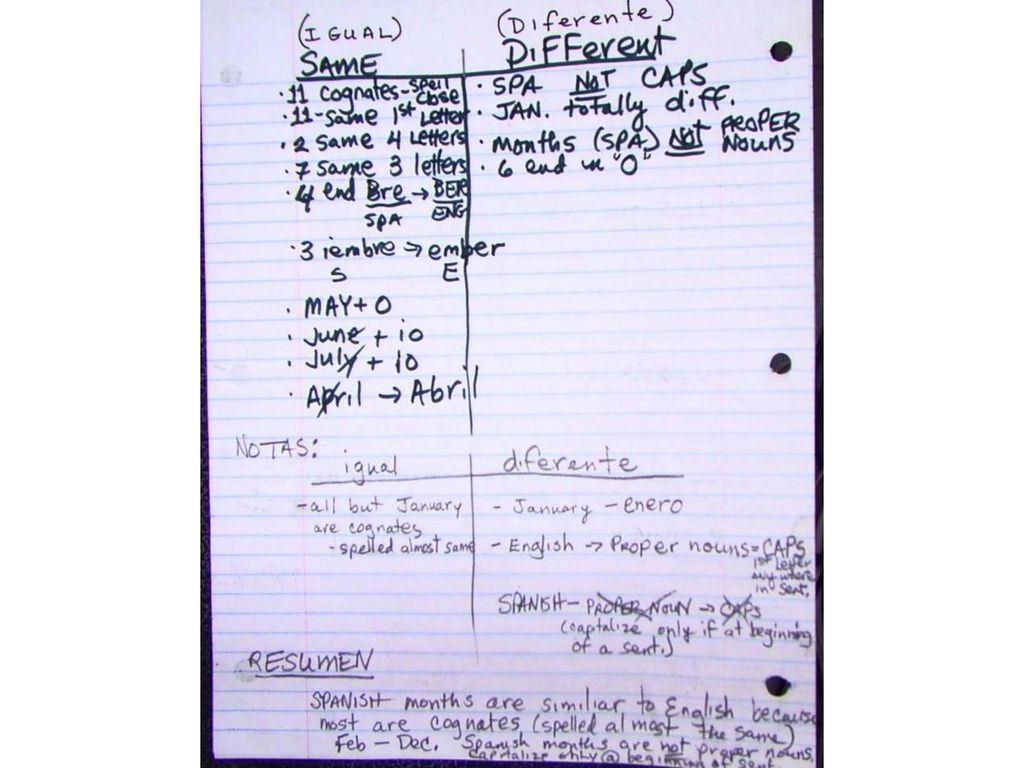 (IGUAL) (Diferente)
SAME DiFFerent
· 11 cognates - spell close · SPA NOT CAPS
· 11 - same 1st Letter · JAN. totally diff.
· 2 same 4 Letters · months (SPA) NOT PROPER NOUNS
· 7 same 3 letters · 6 end in "O"
· 4 end Bre → BER
SPA ENG
· 3 iembre → ember
S E
· MAY + O
· June + io
· July + io
· April → Abril
NOTAS:
igual diferente
- all but January - January - enero
are cognates
- spelled almost same - English → Proper nouns = CAPS
1st Letter
anywhere
in sent.
SPANISH - PROPER NOUN → CAPS
(capitalize only if at beginning
of a sent.)
RESUMEN
SPANISH months are similiar to English because
most are cognates (spelled almost the same)
Feb - Dec. Spanish months are not proper nouns.
capitalize only @ beginning of sent.